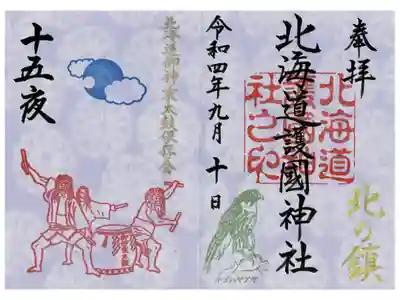 奉拝
北海道護國神社
北海道
護國神
社之印
北の鎮
令和四年九月十日
北海道御神楽太鼓保存会
十五夜